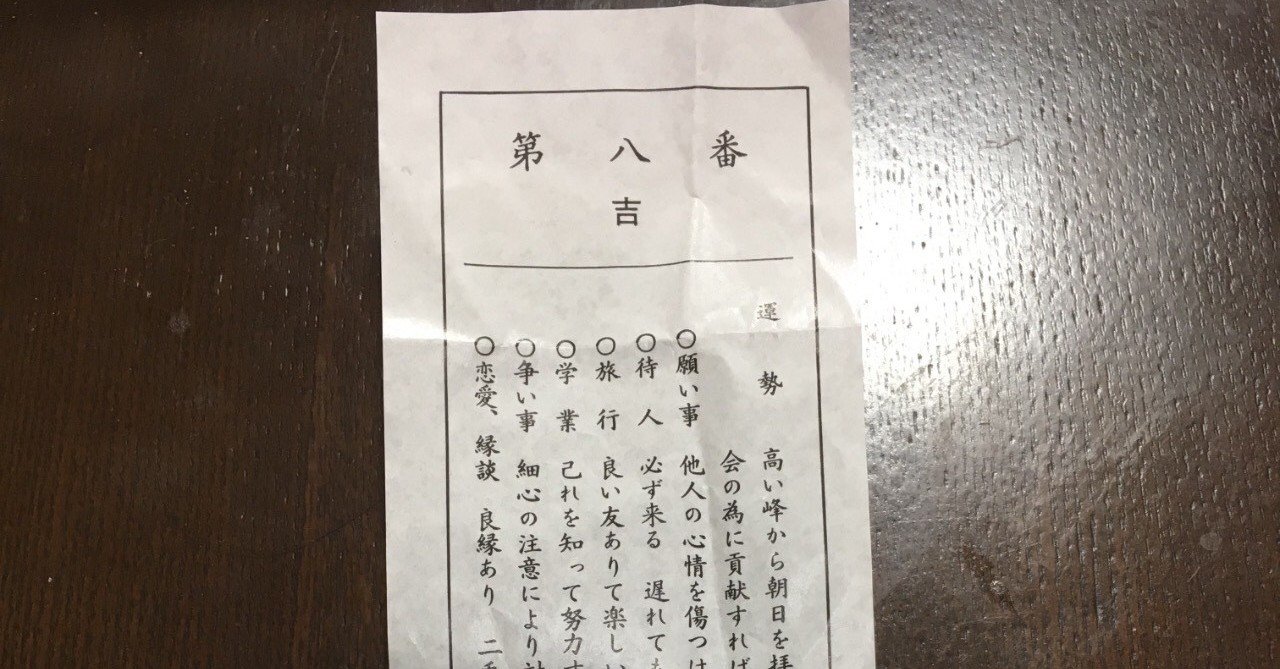 第八番
吉
運勢 高い峰から朝日を拝
会の為に貢献すれば
○願い事 他人の心情を傷つけ
○待人 必ず来る 遅れても
○旅行 良い友ありて楽しい
○学業 己れを知って努力す
○争い事 細心の注意により
○恋愛、縁談 良縁あり 二